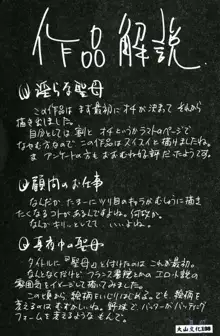 作品解説
① 淫らな聖母
この作品は まず最初に オチが決まって それから
描き出しました。
自分としては 割と オチというかラストのページで
なやむ方なので この作品は スイスイと描けましたね。
ま アンケートの方も おおむね好評だったようです。
② 顧問のお仕事
なんだか たまーに ツリ目のキャラが むしょうに描き
たくなるコトがあるんですよね。何故か。
なんかキリッとしていていいよね。
③ 真夜中の聖母
タイトルに『聖母』とうけたのは これが最初。
なんとなくだけど フランス書院とかの エロ小説の
雰囲気をイメージして描いてみました。
この頃から 絵柄も
変えるのは むずかしいね。野球で バッターがバッティング
フォームを変えるようなもんで。
大山文化186